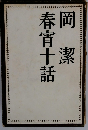 岡潔
春宵十話